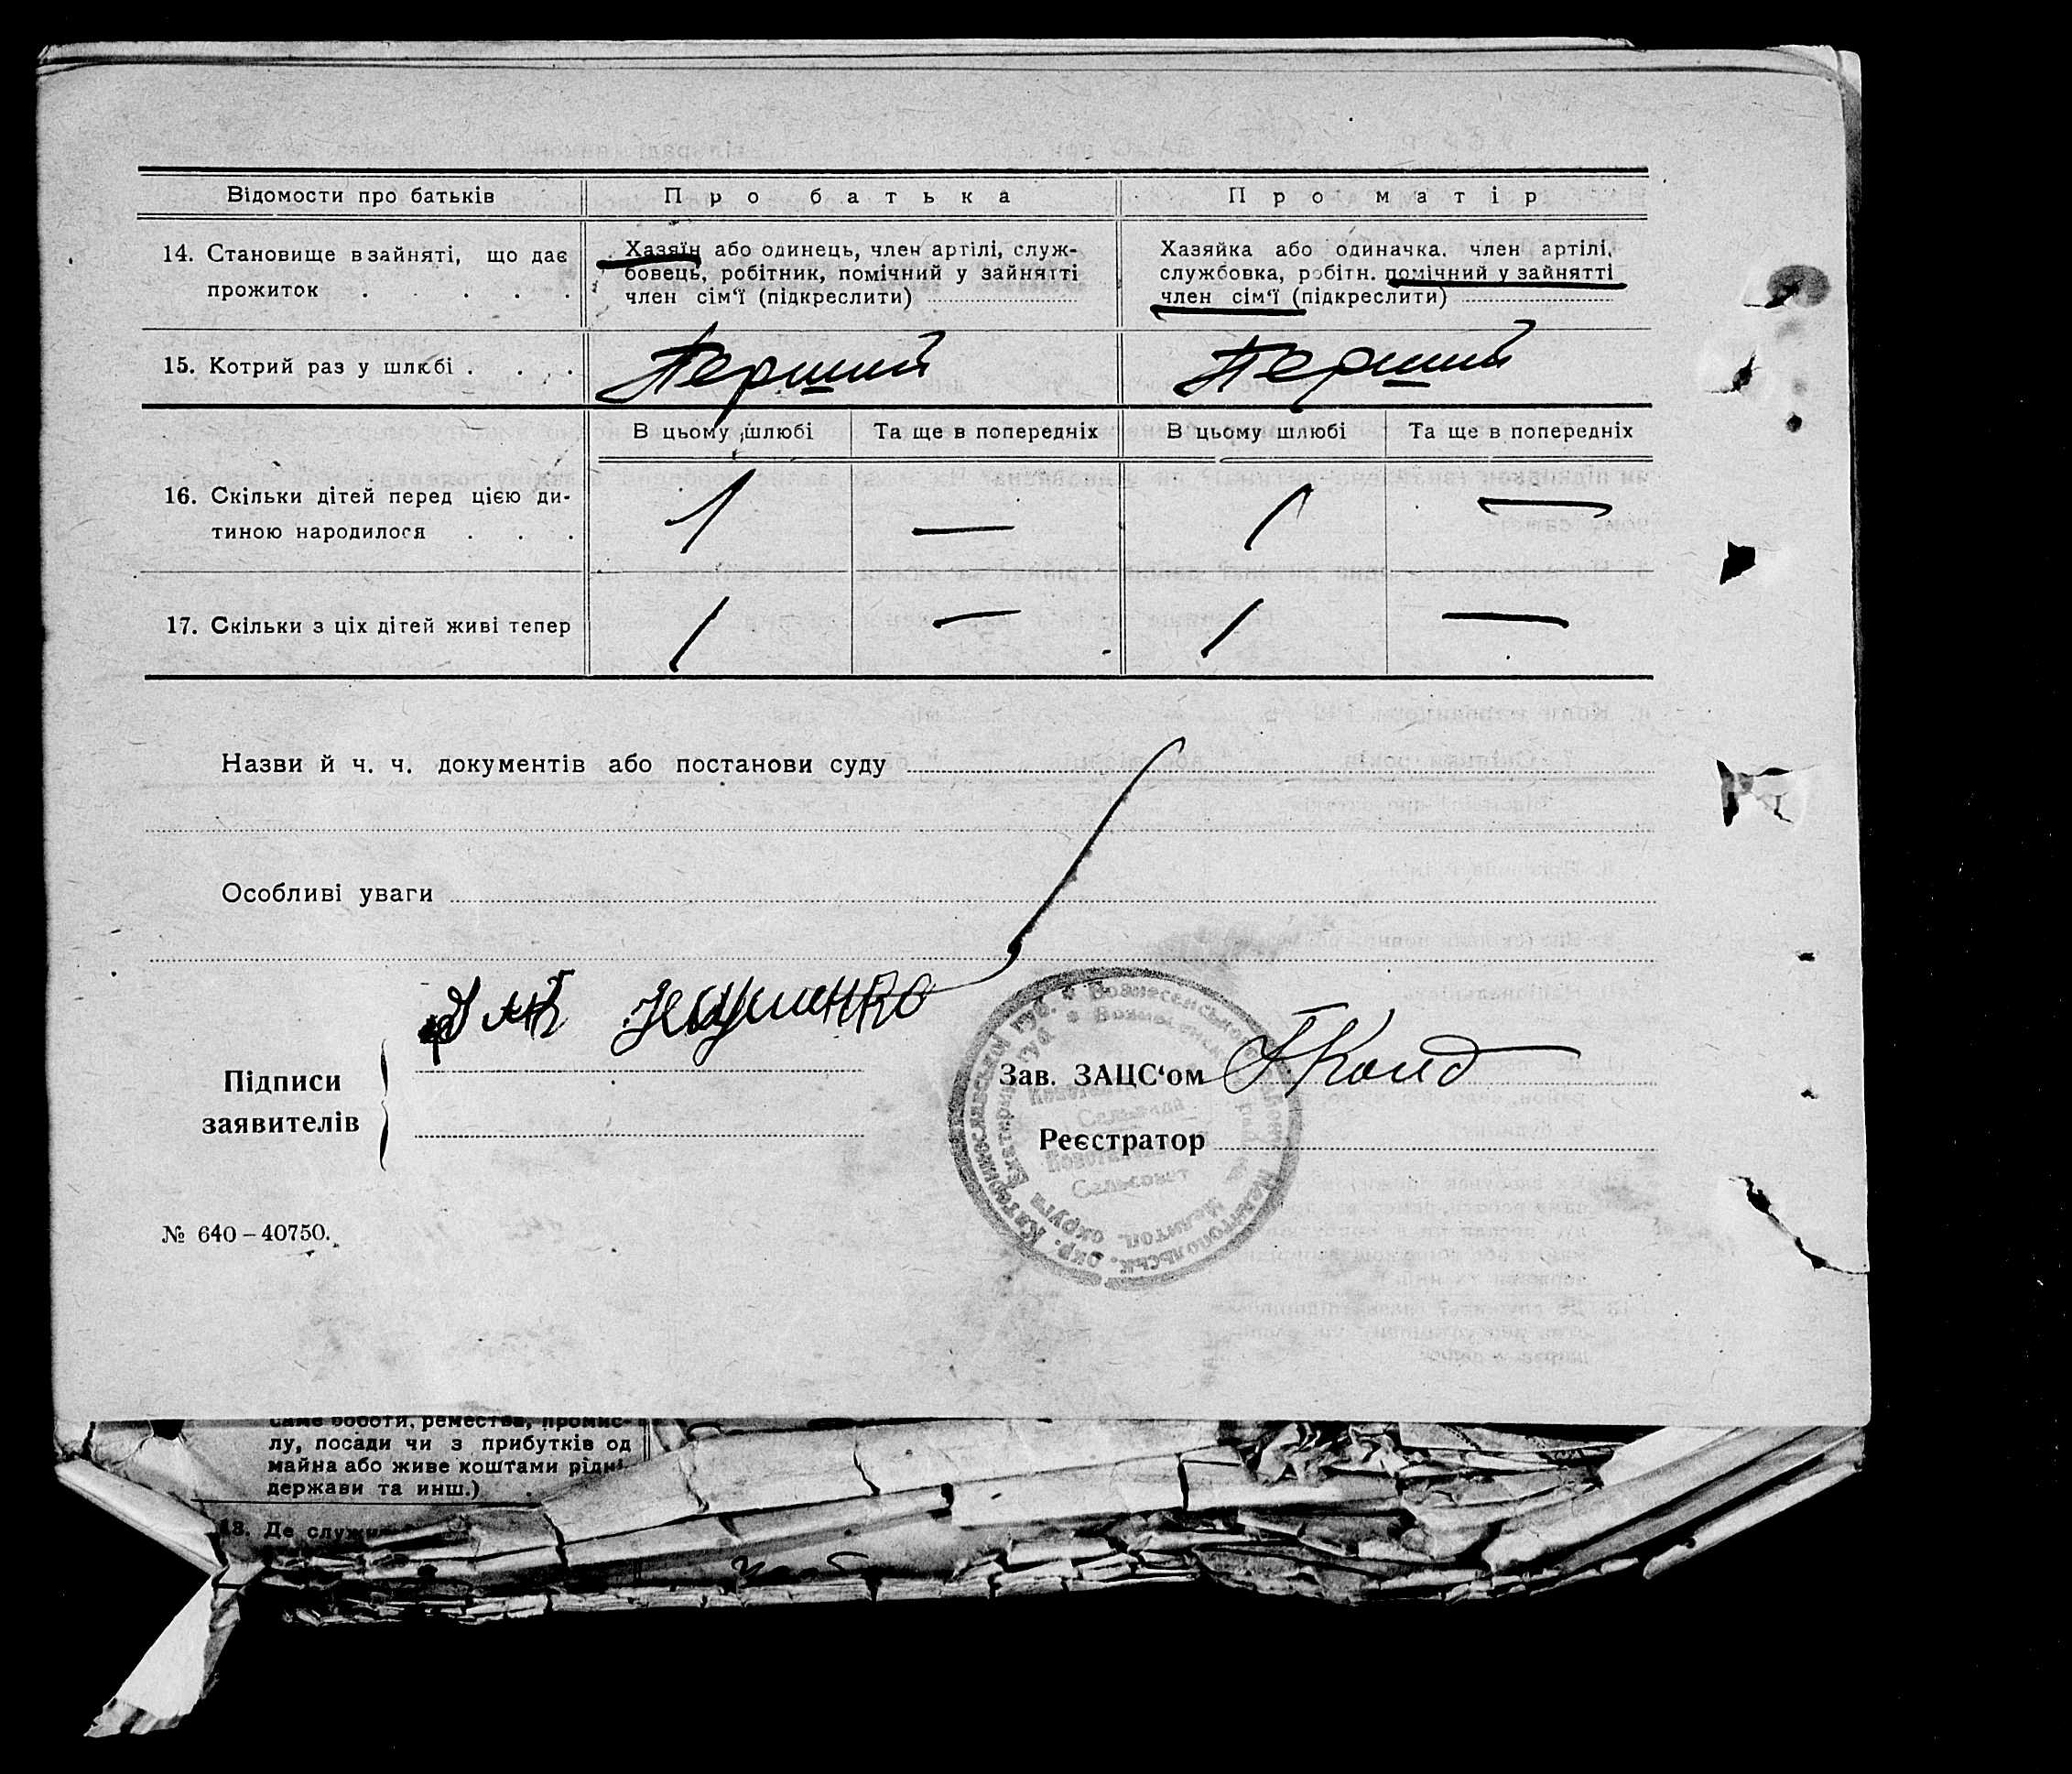 Відомости про батьків
Про батька
Про матір
14. Становище в зайняті, що дає прожиток . . . . .
Хазяїн або одинець, член артілі, служ-
бовець, робітник, помічний у зайнятті
член сім‘ї (підкреслити)
Хазяйка або одиначка. член артілі,
службовка, робітн. помічний у зайнятті
член сім‘ї (підкреслити)
15. Котрий раз у шлюбі . . . .
Перший
Перший
В цьому шлюбі
Та ще в попередніх
В цьому шлюбі
Та ще в попередніх
16. Скільки дітей перед цією ди-
тиною народилося . . . .
1 — 1 —
17. Скільки з ціх дітей живі тепер
1 — 1 —
Назви й ч. ч. документів або постанови суду
Особливі уваги
Підписи
заявителів
Зав. ЗАЦС‘ом
Реєстратор
Катеринославської губ. * Вознесенського
Мелітопольськ. Окр.
Мелитоп. округа Екатерин. губ.
Сельрада
Сельсовет
№ 640–40750.
саме роботи, ремества, промис-
лу, посади чи з прибутків од
майна або живе коштами рідні
держави та инш.)
18. Де